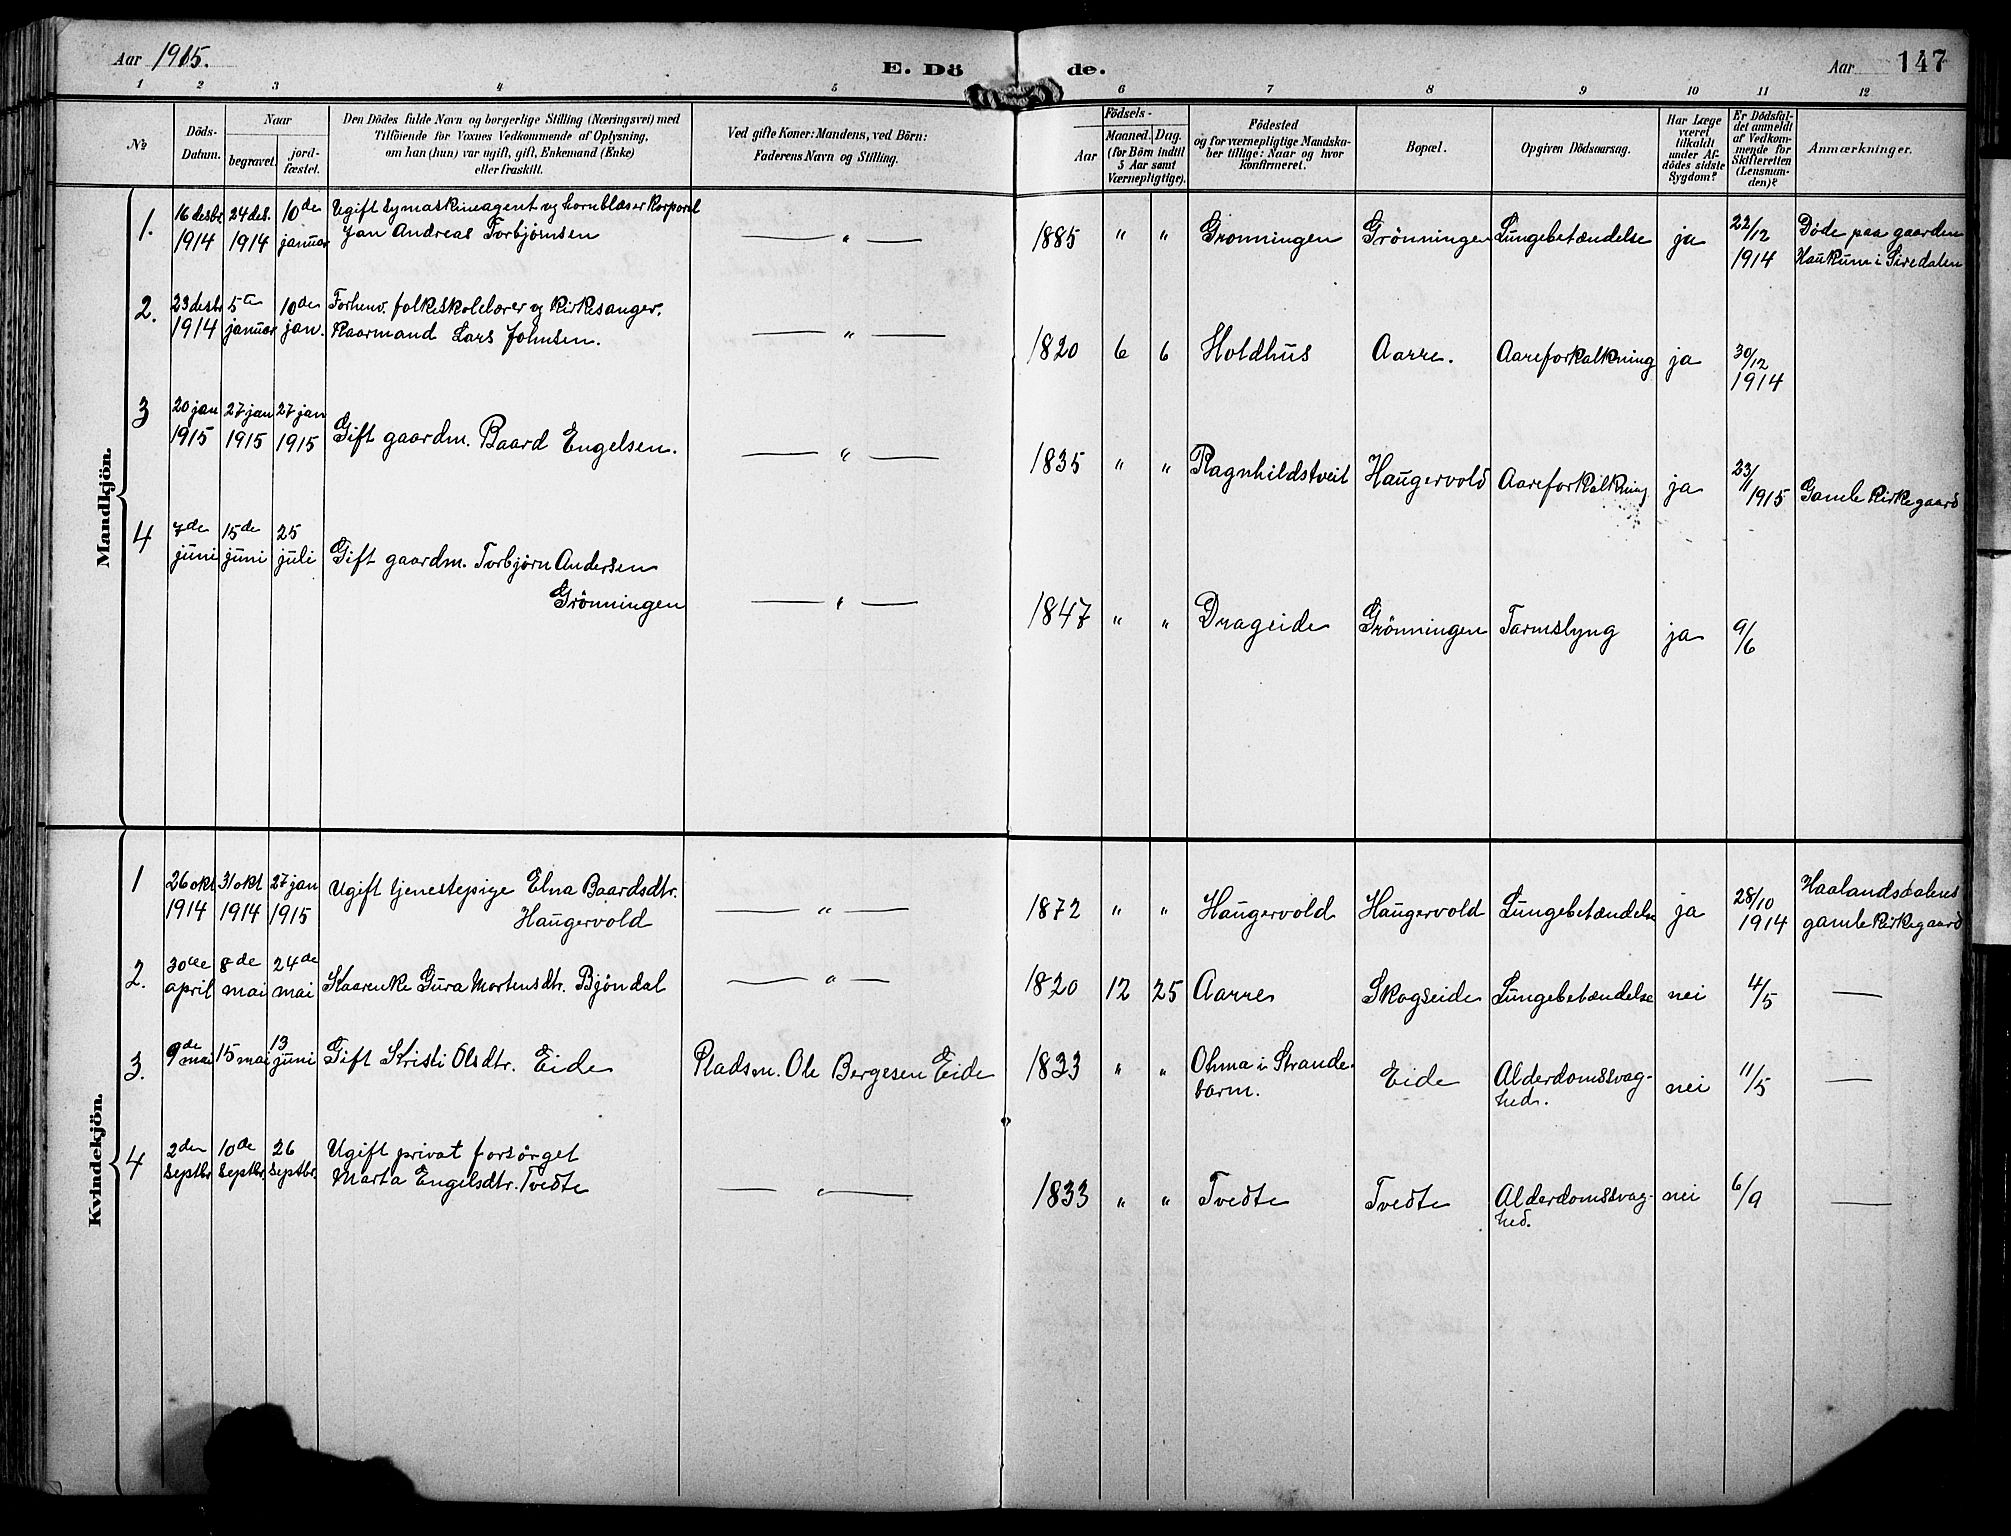 Aar 1915.
E. Döde.
Aar 147
1 2 3 4 5 6 7 8 9 10 11 12
No
Döds-Datum.
Naar
begravet.
jordfæstet.
Den Dödes fulde Navn og borgerlige Stilling (Næringsvei) med
Tilföiende for Voxnes Vedkommende af Oplysning,
om han (hun) var ugift, gift, Enkemand (Enke)
eller fraskilt.
Ved gifte Koner: Mandens, ved Börn:
Faderens Navn og Stilling.
Födsels-
Aar
Maaned. Dag.
(for Börn indtil
5 Aar samt
Værnepligtige).
Födested
og for værnepligtige Mandska-
ber tillige: Naar og hvor
konfirmeret.
Bopæl.
Opgiven Dödsaarsag.
Har Læge
været
tilkaldt
under Af-
dödes sidste
Sygdom?
Er Dödsfal-
det anmeldt
af Vedkom-
mende for
Skifteretten
(Lensman-
den)?
Anmærkninger.
Mandkjön.
1. 16 desbr 1914 24 des. 1914 10de januar Ugift symaskineagent og hornblæser korporal
Jan Andreas Torbjørnsen — " — 1885 " " Grønningen Grønningen Lungebetændelse ja 22/12 1914 Døde paa gaarden
Haukum i Siredalen
2. 23 desbr 1914 5te januar 10de jan. Forhenv. folkeskolelærer og kirkesanger.
Kaarmand Lars Johnsen. — " — 1820 6 6 Holdhus Aarre. Aareforkalkning ja 30/12 1914
3 20 jan 1915 27 jan 1915 27 jan 1915 Gift gaardm. Baard Engelsen. — " — 1835 " " Ragnhildstveit Haugervold Aareforkalkning ja 23/11 1915 Gamle kirkegaard
4 7de juni 15de juni 25 juli Gift gaardm. Torbjørn Andersen
Grönningen — " — 1847 " " Drageide Grönningen Tarmslyng ja 9/6
Kvindekjön.
1 26 okt 1914 31 okt 1914 27 jan 1915 Ugift tjenestepige Elna Baardsdtr.
Haugervold — " — 1872 " " Haugervold Haugervold Lungebetændelse ja 28/10 1914 Haalandsdalens
gamle kirkegaard
2. 30te april 8de mai 24de mai Kaarenke Gura Mortensdtr. Bjöndal — " — 1820 12 25 Aarre Skogseide Lungebetændelse nei 4/5 —
3. 9de mai 15 mai 13 juni Gift Kristi Olsdtr. Eide Pladsm. Ole Bergesen Eide 1833 " " Ohma i Strande-
barm. Eide Alderdomssvag-
hed. nei 11/5 —
4 2den septbr 10de septbr. 26 septbr. Ugift privat forsörget
Marta Engelsdtr. Tvedte — " — 1833 " " Tvedte Tvedte Alderdomssvag-
hed. nei 6/9 —